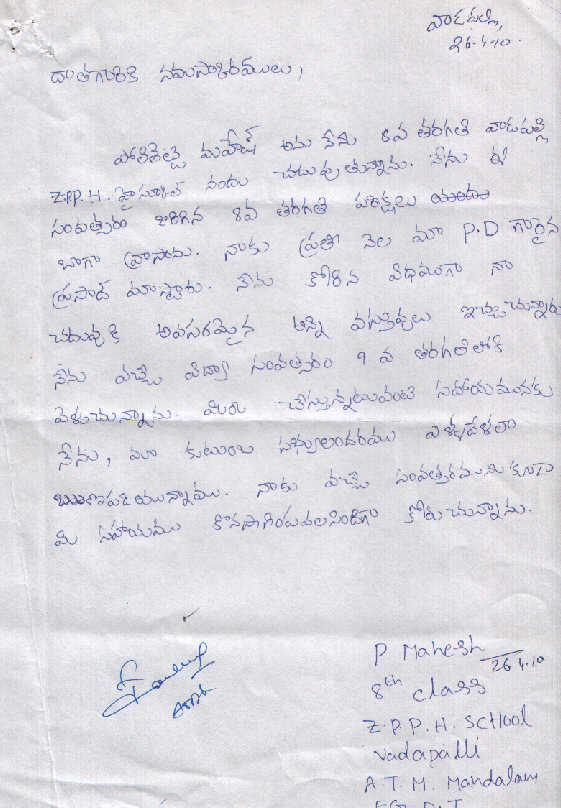 వాడపల్లి,
26.4.10.
దాతగారికి నమస్కారములు,
పోతిరెడ్డి మహేష్ అను నేను 8వ తరగతి వాడపల్లి
Z.P.P.H. హైస్కూల్ నందు చదువుతున్నాను. నేను ఈ
సంవత్సరం జరిగిన 8వ తరగతి పరీక్షలు
బాగా వ్రాసాను. నాకు ప్రతి నెల మా P.D గారైన
ప్రసాద్ మాస్టారు. నేను కోరిన విధముగా నా
చదువుకి అవసరమైన అన్ని వస్తువులు ఇచ్చుచున్నారు
నేను వచ్చే విద్యా సంవత్సరం 9 వ తరగతిలోకి
వెళుచున్నాను. మీరు చేస్తున్నటువంటి సహాయమునకు
నేను, మా కుటుంబ సభ్యులందరము ఎళ్ళవేళలా
ఋణపడియున్నాము. నాకు వచ్చే సంవత్సరమునకు కూడా
మీ సహాయము కొనసాగించవలసిందిగా కోరుచున్నాను.
P Mahesh
26.4.10
8th class
Z.P.P.H. School
Vadapalli
A.T.M. Mandalam